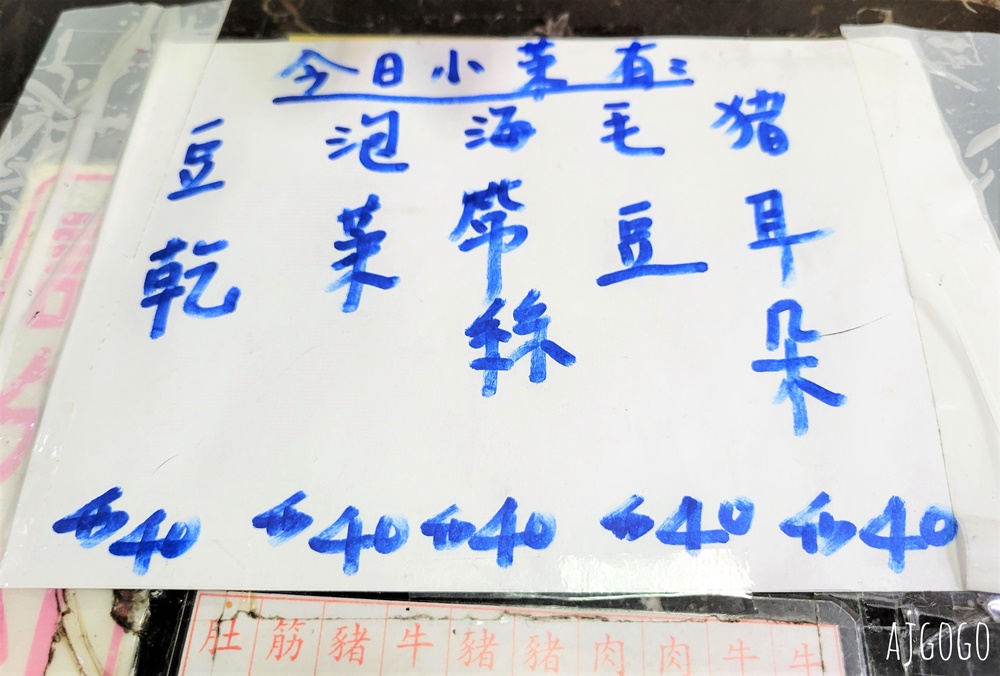 今日小菜有:
豆乾
$40
泡菜
$40
海帶絲
$40
毛豆
$40
猪耳朵
$40
肚 筋 豬 牛 豬 豬 肉 肉 牛 牛
AJGOGO